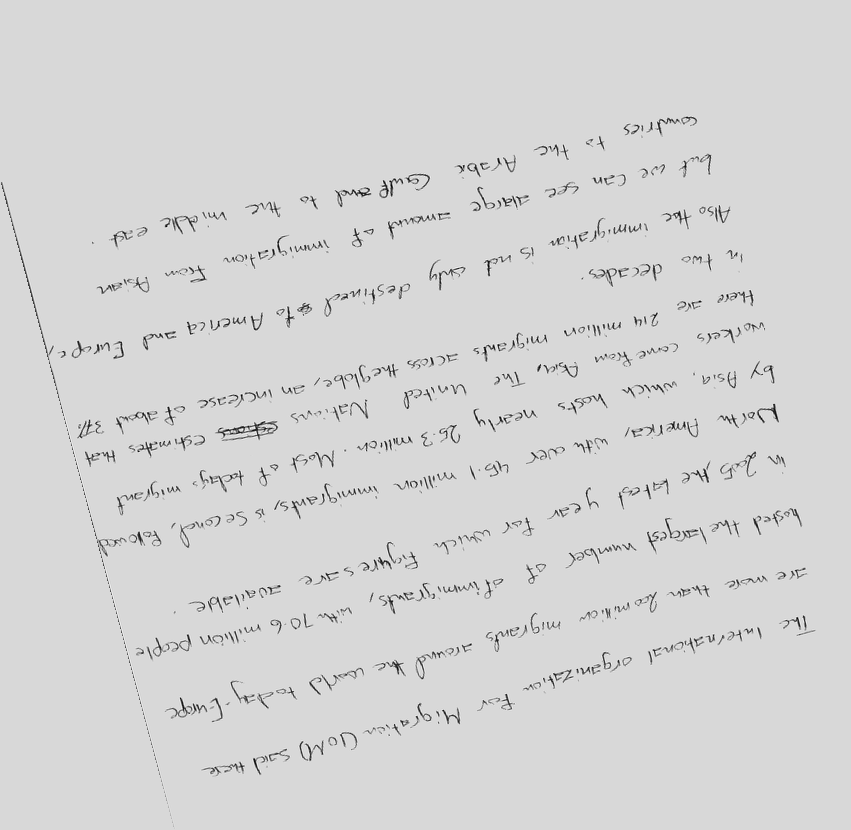 The International organization for Migration (IOM) said there
are more than 200 million migrants around the world today. Europe
hosted the largest number of immigrants, with 70.6 million people
in 2005, the latest year for which figures are available.
North America, with over 45.1 million immigrants, is second, followed
by Asia, which hosts nearly 25.3 million. Most of today's migrant
workers come from Asia, The United Nations estimates that
there are 214 million migrants across the globe, an increase of about 37%
in two decades.
Also the immigration is not only destined to America and Europe,
but we can see alarge amount of immigration from Asian
countries to the Arabic Gulf and to the middle east.